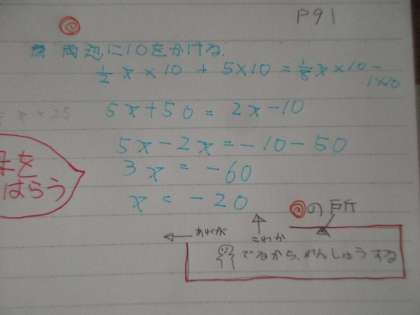 P91
両辺に10をかける.
1/2 x × 10 + 5×10 = 1/5 x × 10 - 1×10
5x+50 = 2x-10
5x-2x = -10-50
3x = -60
x = -20
母を
はらう
の所
でるから、れんしゅうする